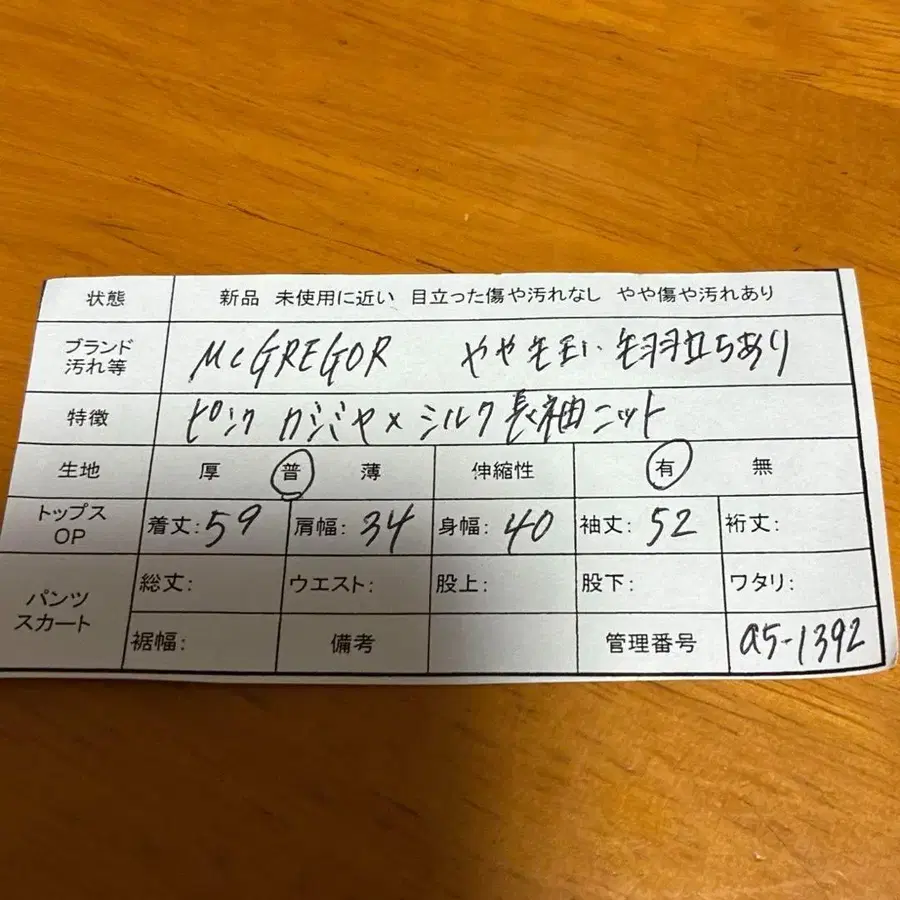 状態 新品 未使用に近い 目立った傷や汚れなし やや傷や汚れあり
ブランド 汚れ等 McGREGOR やや毛玉 毛羽立ちあり
特徴 ピンク カシミヤ×シルク長袖ニット
生地 厚 普 薄 伸縮性 有 無
トップス OP 着丈:59 肩幅:34 身幅:40 袖丈:52 裄丈:
パンツ スカート 総丈: ウエスト: 股上: 股下: ワタリ:
裾幅: 備考 管理番号 a5-1392